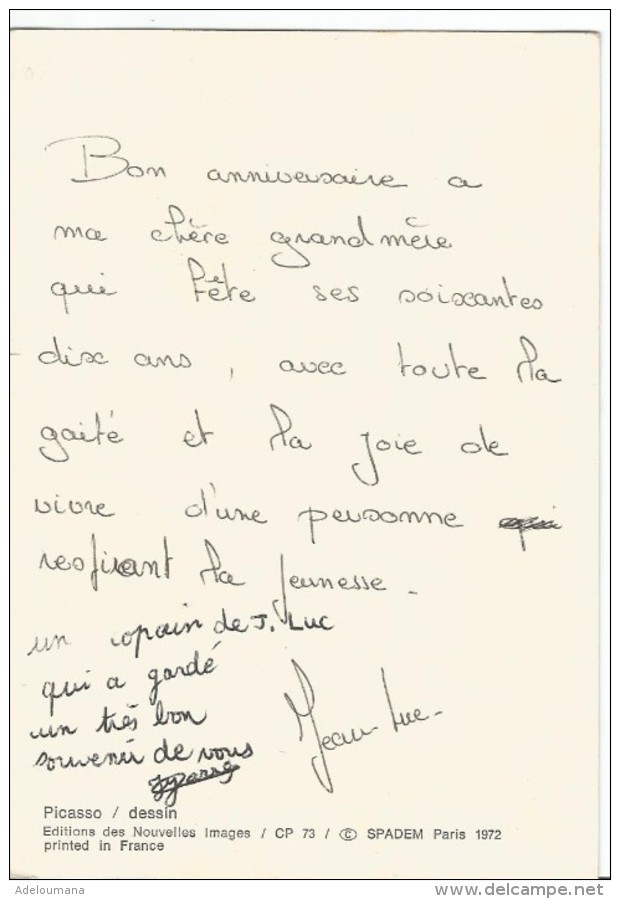 Bon anniversaire a
ma chère grand mère
qui fête ses soixantes
dix ans, avec toute la
gaité et la joie de
vivre d'une personne qui
respirant la jeunesse.
un copain de J. Luc
qui a gardé
un très bon
souvenir de vous
Jean-Luc-
Picasso / dessin
Editions des Nouvelles Images / CP 73 / © SPADEM Paris 1972
printed in France
Adeloumana
http://www.delcampe.net